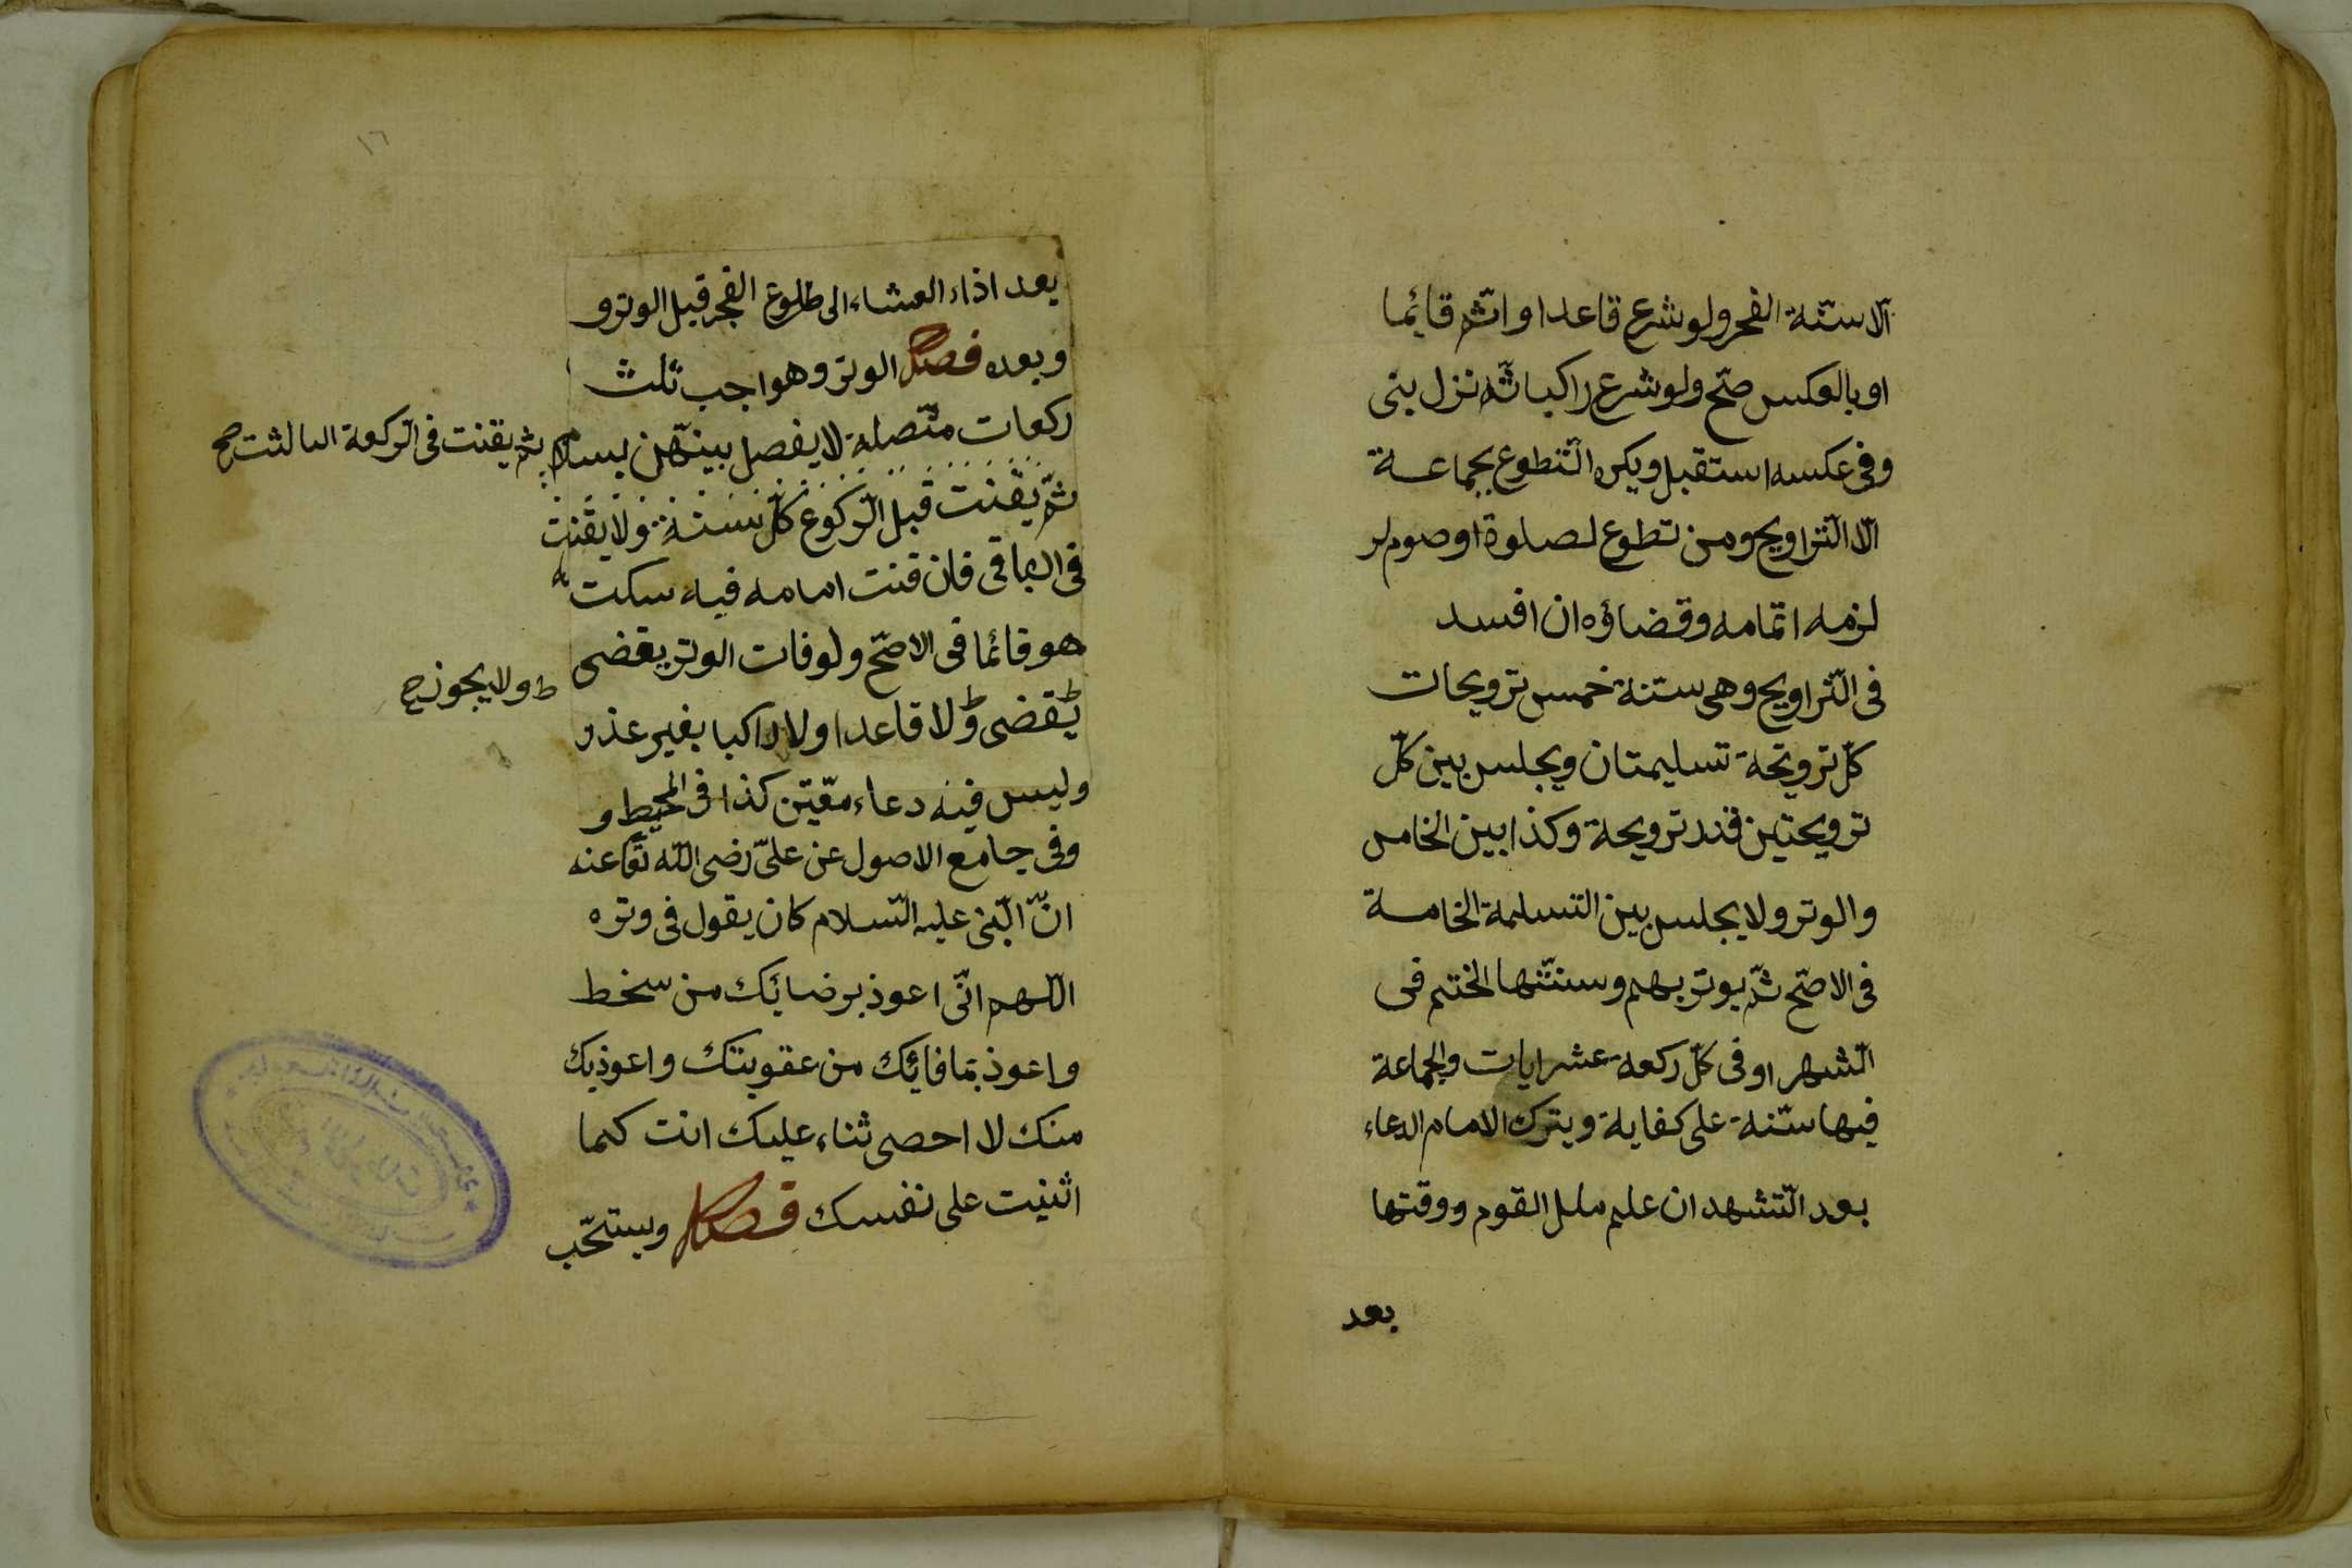 الا سنّة الفجر ولو شرع قاعدا واتّم قائما
او بالعكس صّح ولو شرع راكبا ثّم نزل بنى
وفى عكسه استقبل ويكره التّطوع بجماعة
الّا التّراويح ومن تطوع لصلوة او صوم لز
لزمه اتمامه وقضاؤه ان افسد
فى التّراويح وهى سنة خمس ترويحات
كلّ ترويحة تسليمتان ويجلس بين كلّ
ترويحتين قدر ترويحة وكذا بين الخامس
والوتر ولا يجلس بين التسلمة الخامسة
فى الاصّح ثّم يوتر بهم وسنّتها الختم فى
الّشهر او فى كلّ ركعة عشر ايات والجماعة
فيها سّنة على كفاية ويترك الامام الدعاء
بعد التّشهد ان علم ملل القوم ووقتها
بعد
١٦
بعد اذاء العشاء الى طلوع الفجر قبل الوتر و
وبعده فصل الوتر وهو اجب ثلث
ركعات متّصلة لا يفصل بينهّن بسلام
ثم يقنت فى الّركعة الثالثت صح
ثّم يقنت قبل الّركوع كلّ سنة ولا يقنت
فى الباقى فان قنت امامه فيه سكت
هو قائما فى الاصّح ولو فات الوتر يقضى
يقضى ولا قاعدا ولا راكبا بغير عذر
ط ولا يجوز صح
وليس فيه دعاء معّين كذا فى المحيط و
وفى جامع الاصول عن علىّ رضى اللّه تعا عنه
انّ الّنبى عليه السّلام كان يقول فى وتره
اللّهم انّى اعوذ برضائك من سخط
واعوذ بمافائك من عقوبتك واعوذ بك
منك لا احصى ثناء عليك انت كما
اثنيت على نفسك فصل ويستحّب